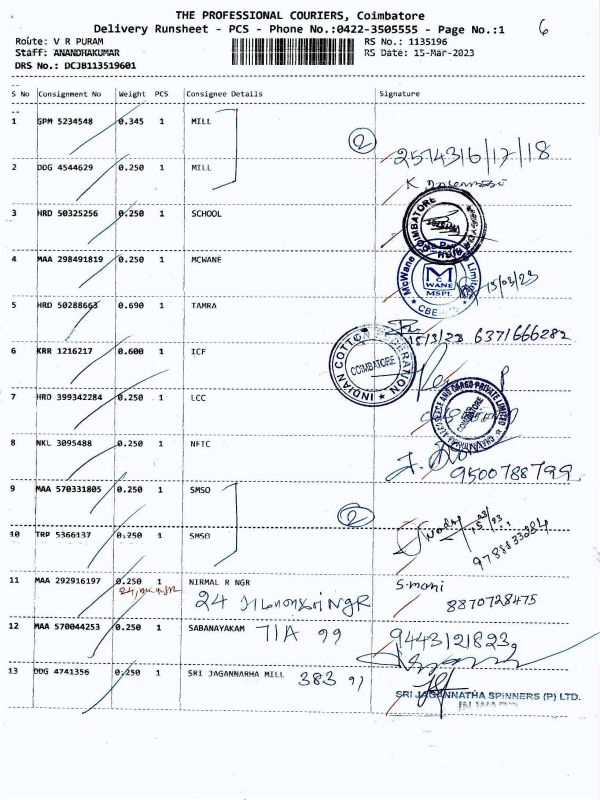 THE PROFESSIONAL COURIERS, Coimbatore
Delivery Runsheet - PCS - Phone No.:0422-3505555 - Page No.:1 6
Route: V R PURAM RS No.: 1135196
Staff: ANANDHAKUMAR RS Date: 15-Mar-2023
DRS No.: DCJB113519601
S No Consignment No Weight PCS Consignee Details Signature
1 GPM 5234548 0.345 1 MILL
2
2574316/17/18
2 DDG 4544629 0.250 1 MILL
3 HRD 50325256 0.250 1 SCHOOL
COIMBATORE
4 MAA 298491819 0.250 1 MCWANE
McWane
M C WANE MSPL
15/03/23
5 HRD 50288663 0.690 1 TAMRA
15/3/23 6371666282
6 KRR 1216217 0.600 1 ICF
INDIAN COTTON FEDERATION
COIMBATORE
7 HRD 399342284 0.250 1 LCC
8 NKL 3095488 0.250 1 NFTC
9500788799
9 MAA 570331805 0.250 1 SMSO
2
10 TRP 5366137 0.250 1 SMSO
11 MAA 292916197 0.250 1 NIRMAL R NGR S.mani
24 NGR 8870728475
12 MAA 570044253 0.250 1 SABANAYAKAM 71A 9443121823
13 DDG 4741356 0.250 1 SRI JAGANNARHA MILL 383
SRI JAGANNATHA SPINNERS (P) LTD.
INWARD